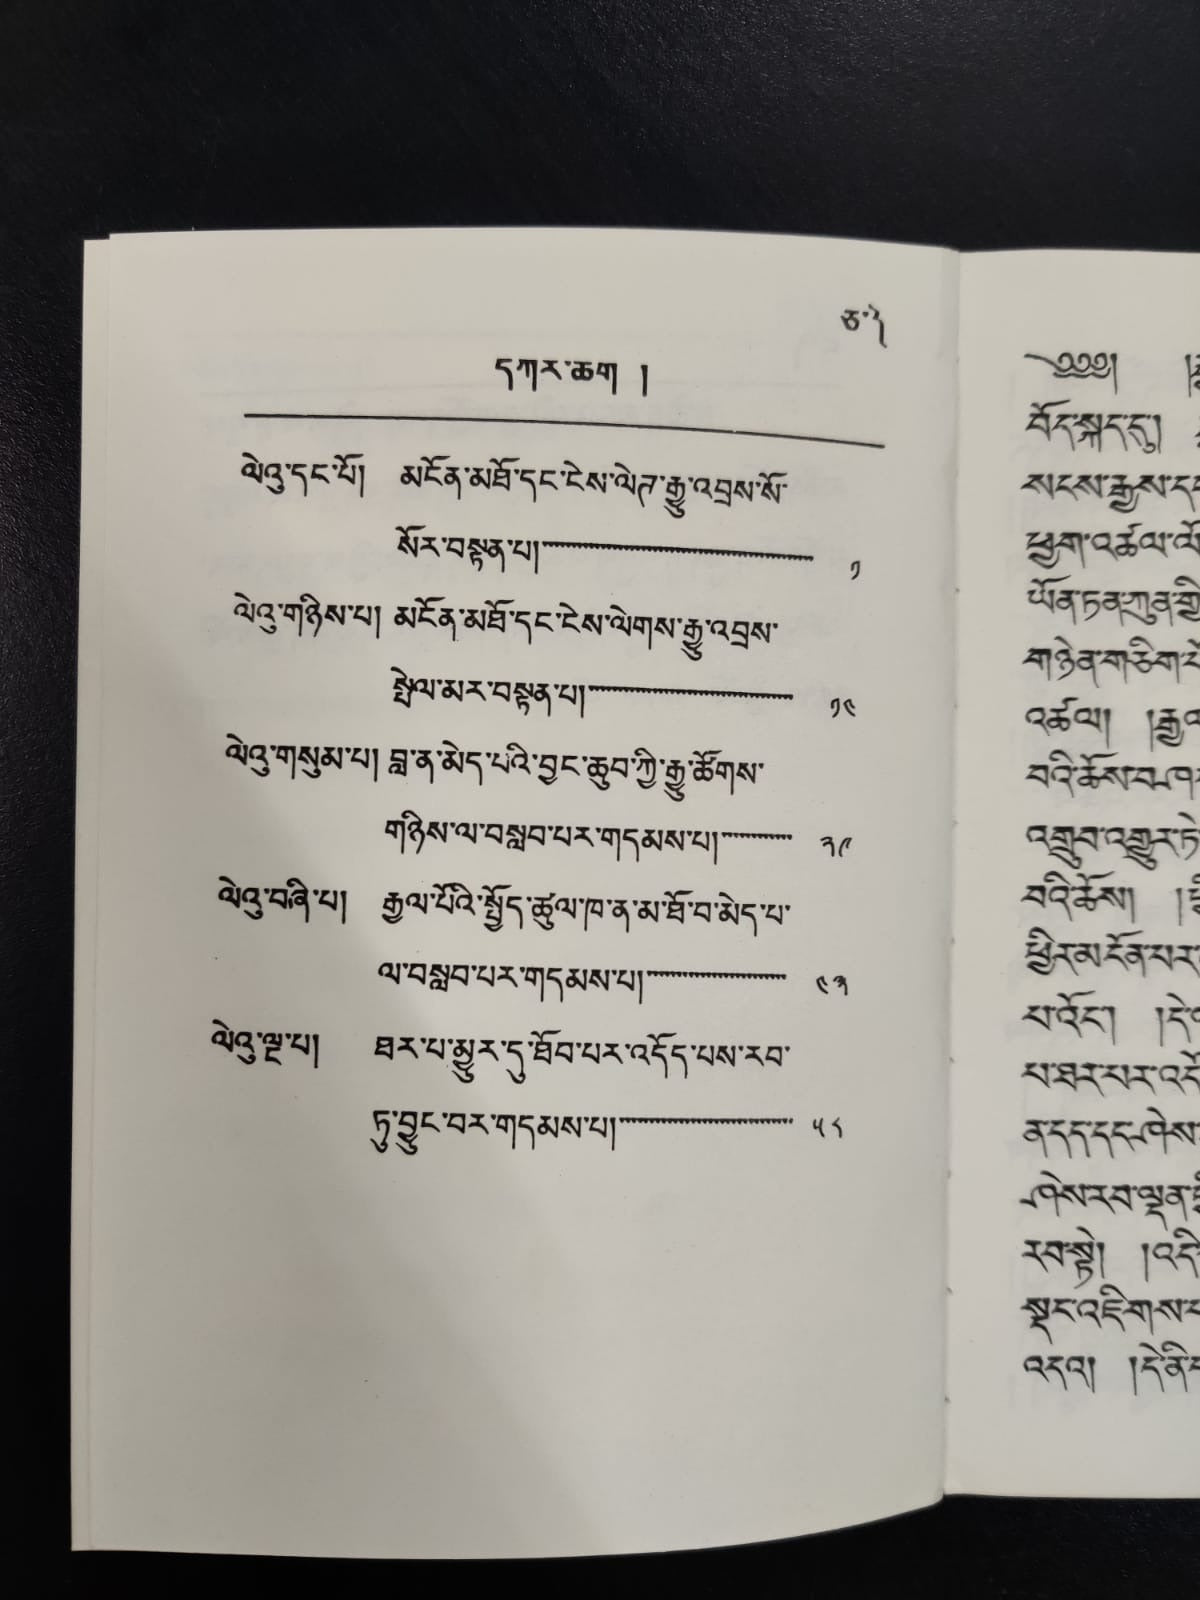 དཀར་ཆག །
ལེའུ་དང་པོ། མངོན་མཐོ་དང་ངེས་ལེཊ་རྒྱུ་འབྲས་སོ་
སོར་བསྟན་པ། ༡
ལེའུ་གཉིས་པ། མངོན་མཐོ་དང་ངེས་ལེགས་རྒྱུ་འབྲས་
སྤེལ་མར་བསྟན་པ། ༡༩
ལེའུ་གསུམ་པ། བླ་ན་མེད་པའི་བྱང་ཆུབ་ཀྱི་རྒྱུ་ཚོགས་
གཉིས་ལ་བསླབ་པར་གདམས་པ། ༢༩
ལེའུ་བཞི་པ། རྒྱལ་པོའི་སྤྱོད་ཚུལ་ཁ་ན་མ་ཐོ་བ་མེད་པ་
ལ་བསླབ་པར་གདམས་པ།
ལེའུ་ལྔ་པ། ཐར་པ་མྱུར་དུ་ཐོབ་པར་འདོད་པས་རབ་
ཏུ་བྱུང་བར་གདམས་པ།
བོད་སྐད་དུ།
སངས་རྒྱས་དང
ཕྱག་འཚལ་ལོ
ཡོན་ཏན་ཀུན་གྱི
གཉེན་གཅིག་པོ
འཚལ། །རྒྱལ
བའི་ཆོས་བཤད
འགྲུབ་འགྱུར་ཏེ
བའི་ཆོས།
ཕྱིར་མངོན་པར
པ་འོང་། །དེ
པ་ཐར་པར་འདོ
ན་དད་དང་ཤེས
ཤེས་རབ་ལྡན
རབ་སྟེ། །འདི
སྡང་འཇིགས
འདའ། །དེ་ནི